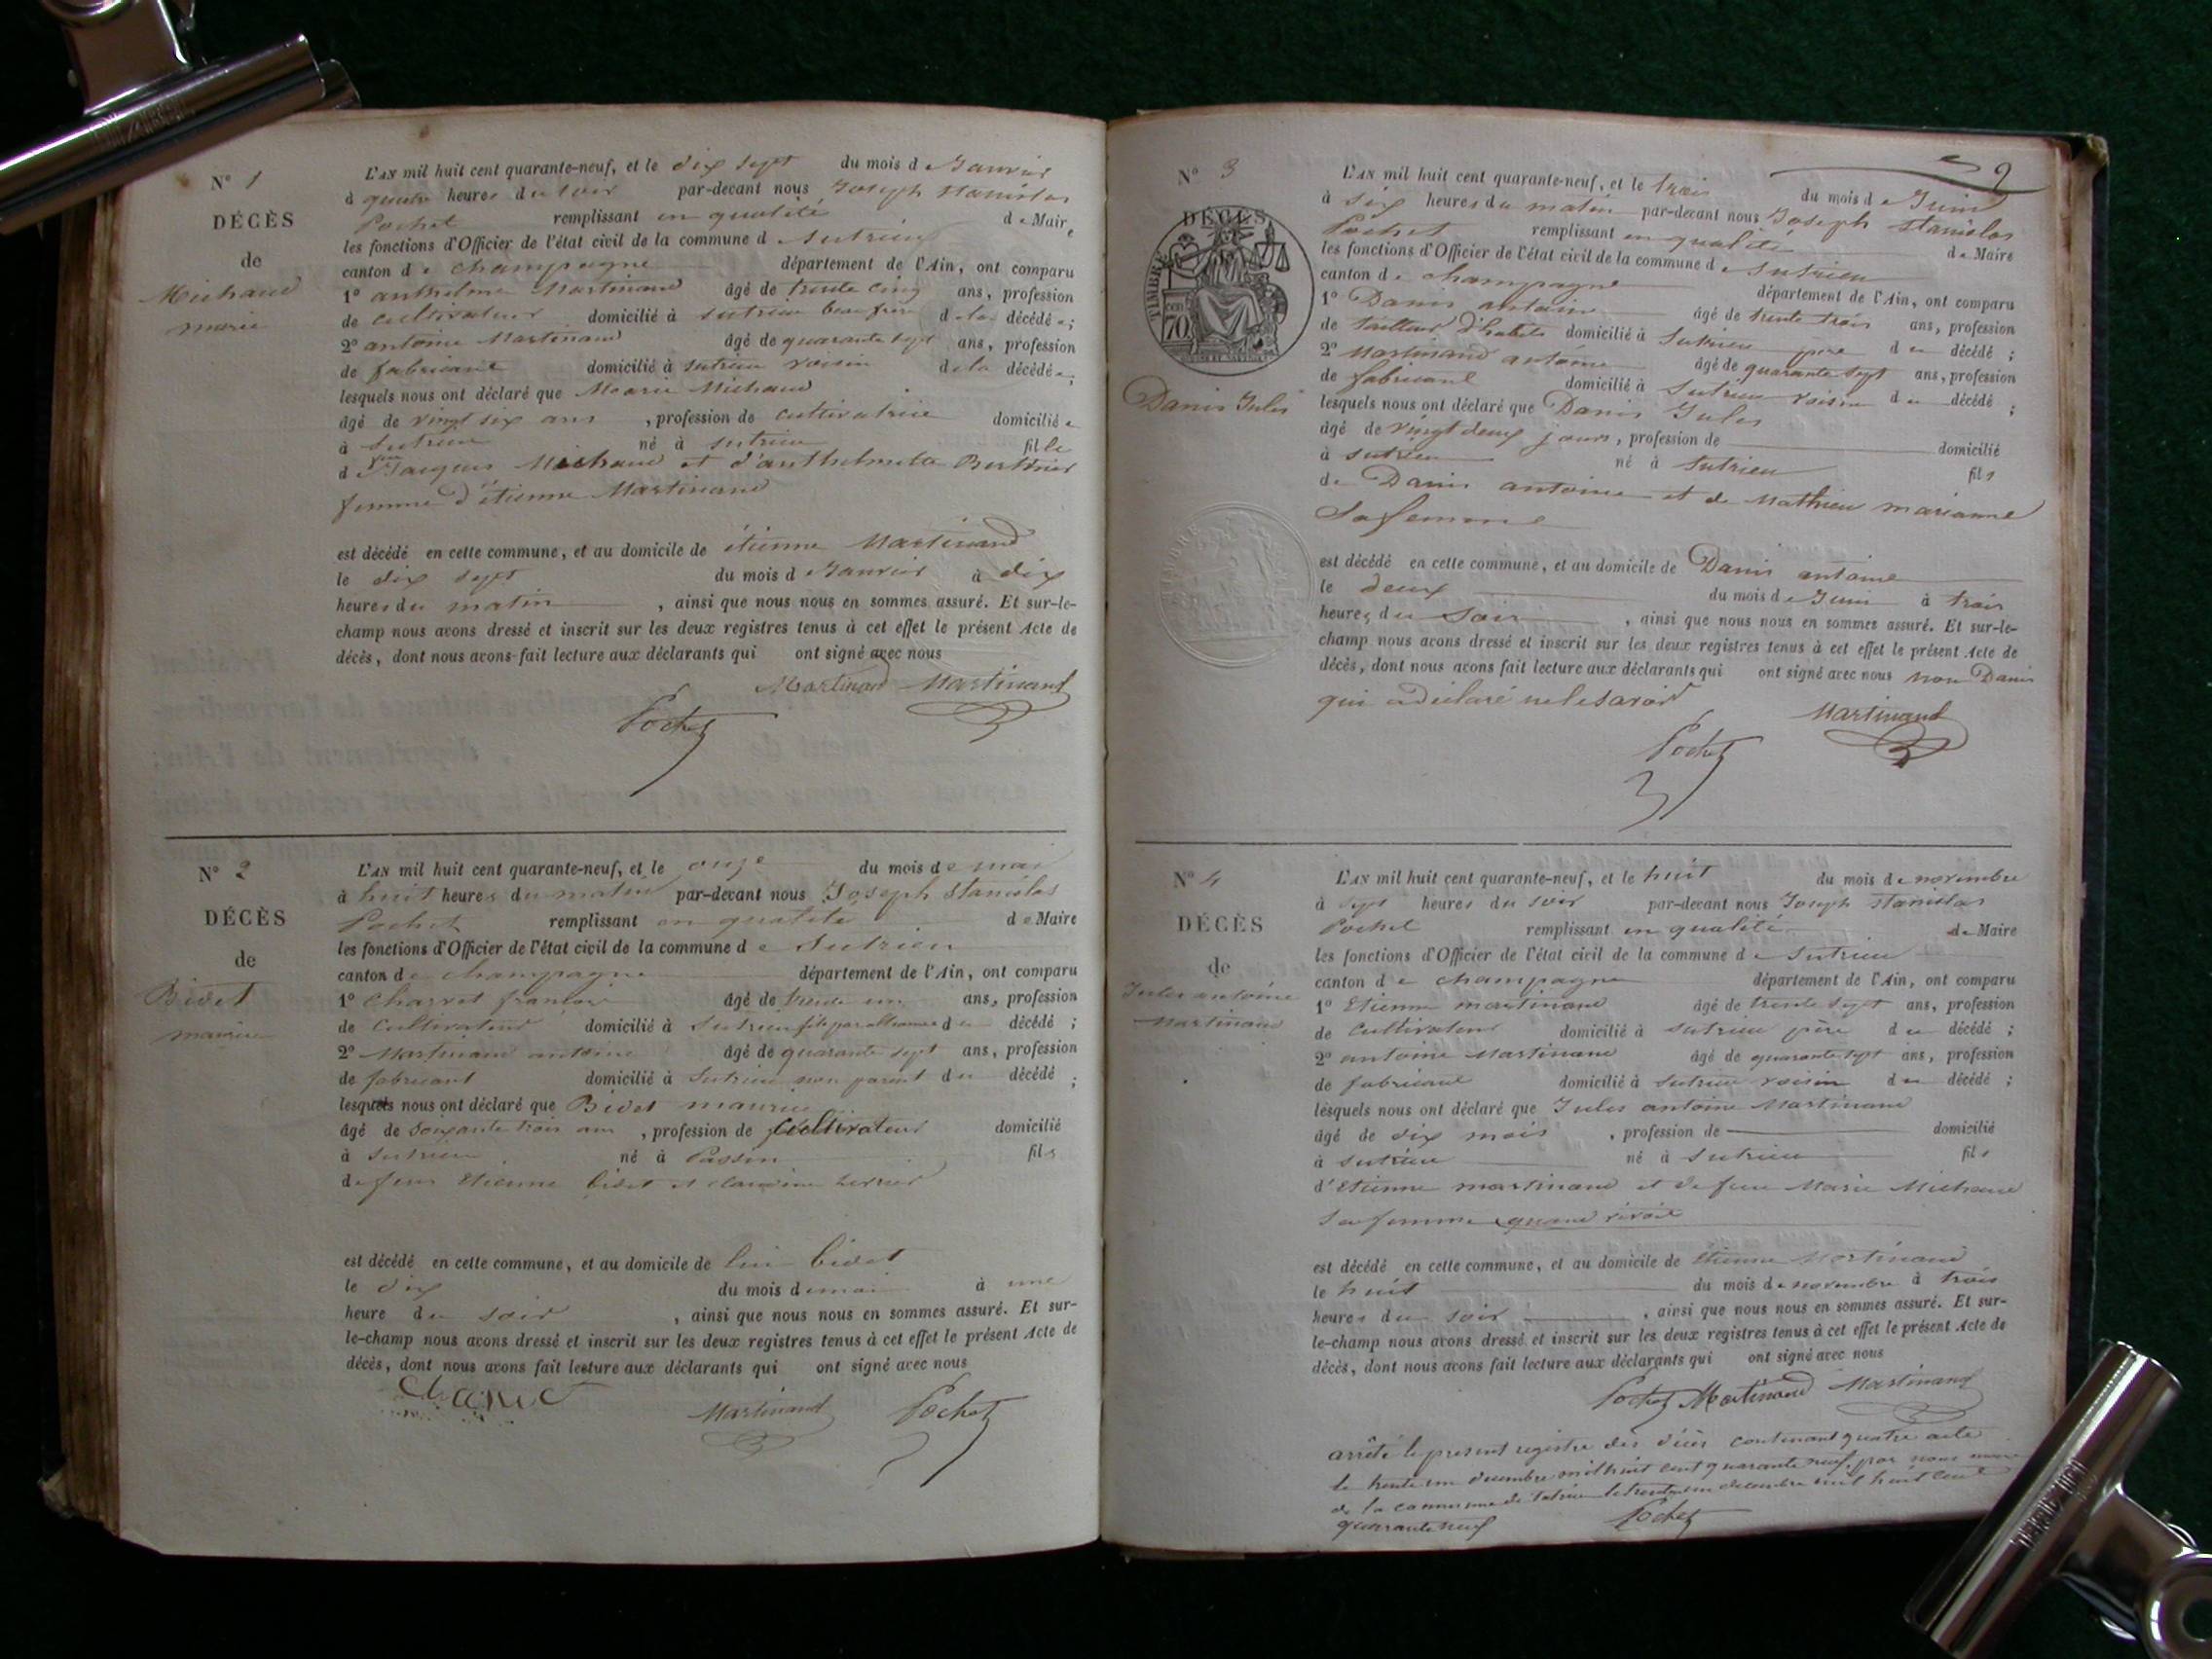 N° 1
DÉCÈS
de
Michaud
marie
L'AN mil huit cent quarante-neuf, et le dix sept du mois de Janvier
à quatre heures du soir par-devant nous Joseph Stanislas
Pochet remplissant en qualité de Maire
les fonctions d'Officier de l'état civil de la commune de Sutrieu
canton de champagne département de l'Ain, ont comparu
1° anthelme Martinand âgé de trente cinq ans, profession
de cultivateur domicilié à Sutrieu beau frère de la décédée;
2° antoine Martinand âgé de quarante sept ans, profession
de fabricant domicilié à Sutrieu voisin de la décédée;
lesquels nous ont déclaré que Marie Michaud
âgé de vingt six ans, profession de cultivatrice domiciliée
à Sutrieu né à Sutrieu fille
d Jacques Michaud et d'anthelmette
femme d'étienne Martinand
est décédé en cette commune, et au domicile de étienne Martinand
le dix sept du mois d Janvier à dix
heures du matin, ainsi que nous nous en sommes assuré. Et sur-le-
champ nous avons dressé et inscrit sur les deux registres tenus à cet effet le présent Acte de
décès, dont nous avons fait lecture aux déclarants qui ont signé avec nous
Martinand Martinand
Pochet
N° 2
DÉCÈS
de
Bidet
maurice
L'AN mil huit cent quarante-neuf, et le onze du mois de mai
à huit heures du matin par-devant nous Joseph Stanislas
Pochet remplissant en qualité de Maire
les fonctions d'Officier de l'état civil de la commune de Sutrieu
canton de champagne département de l'Ain, ont comparu
1° Charvet françois âgé de trente un ans, profession
de Cultivateur domicilié à Sutrieu fils par alliance du décédé;
2° Martinand antoine âgé de quarante sept ans, profession
de fabricant domicilié à Sutrieu non parent du décédé;
lesquels nous ont déclaré que Bidet maurice
âgé de soixante trois ans, profession de Cultivateur domicilié
à Sutrieu né à Passin fils
de feux Etienne bidet et claudine
est décédé en cette commune, et au domicile de lui bidet
le dix du mois de mai à une
heure du soir, ainsi que nous nous en sommes assuré. Et sur-
le-champ nous avons dressé et inscrit sur les deux registres tenus à cet effet le présent Acte de
décès, dont nous avons fait lecture aux déclarants qui ont signé avec nous
Martinand Pochet
9
N° 3
DÉCÈS
TIMBRE
70
Danis Jules
L'AN mil huit cent quarante-neuf, et le trois du mois de Juin
à six heures du matin par-devant nous Joseph Stanislas
Pochet remplissant en qualité de Maire
les fonctions d'Officier de l'état civil de la commune de Sutrieu
canton de champagne département de l'Ain, ont comparu
1° Danis antoine âgé de trente trois ans, profession
de tailleur d'habits domicilié à Sutrieu père du décédé;
2° Martinand antoine âgé de quarante sept ans, profession
de fabricant domicilié à Sutrieu voisin du décédé;
lesquels nous ont déclaré que Danis Jules
âgé de vingt deux jours, profession de domicilié
à Sutrieu né à Sutrieu fils
de Danis antoine et de Mathieu marianne
Sa femme
est décédé en cette commune, et au domicile de Danis antoine
le deux du mois de Juin à trois
heures du soir, ainsi que nous nous en sommes assuré. Et sur-le-
champ nous avons dressé et inscrit sur les deux registres tenus à cet effet le présent Acte de
décès, dont nous avons fait lecture aux déclarants qui ont signé avec nous non Danis
qui a déclaré ne le savoir
Martinand
Pochet
N° 4
DÉCÈS
de
Jules antoine
Martinand
L'AN mil huit cent quarante-neuf, et le huit du mois de novembre
à sept heures du soir par-devant nous Joseph Stanislas
Pochet remplissant en qualité de Maire
les fonctions d'Officier de l'état civil de la commune de Sutrieu
canton de champagne département de l'Ain, ont comparu
1° Etienne martinand âgé de trente sept ans, profession
de Cultivateur domicilié à Sutrieu père du décédé;
2° antoine Martinand âgé de quarante sept ans, profession
de fabricant domicilié à Sutrieu voisin du décédé;
lesquels nous ont déclaré que Jules antoine Martinand
âgé de dix mois, profession de domicilié
à Sutrieu né à Sutrieu fils
d'Etienne martinand et de feue Marie Michaud
Sa femme quand vivait
est décédé en cette commune, et au domicile de Etienne Martinand
le huit du mois de novembre à trois
heures du soir, ainsi que nous nous en sommes assuré. Et sur-
le-champ nous avons dressé et inscrit sur les deux registres tenus à cet effet le présent Acte de
décès, dont nous avons fait lecture aux déclarants qui ont signé avec nous
Pochet Martinand Martinand
arrêté le present registre des décès contenant quatre acte
le trente un decembre mil huit cent quarante neuf, par nous maire
de la commune de Sutrieu le trente un decembre mil huit cent
quarante neuf Pochet